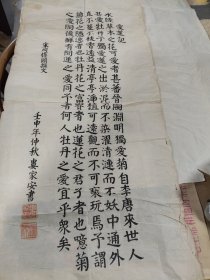 愛蓮說
水陸草木之花可愛者甚蕃晉陶淵明獨愛菊自李唐來世人
甚愛牡丹予獨愛蓮之出淤泥而不染濯清漣而不妖中通外
直不蔓不枝香遠益清亭亭淨植可遠觀而不可褻玩焉予謂
菊花之隱逸者也牡丹花之富貴者也蓮花之君子者也噫菊
之愛陶後鮮有聞蓮之愛同予者何人牡丹之愛宜乎衆矣
宋周敦頤散文
壬申年仲秋惠家安書